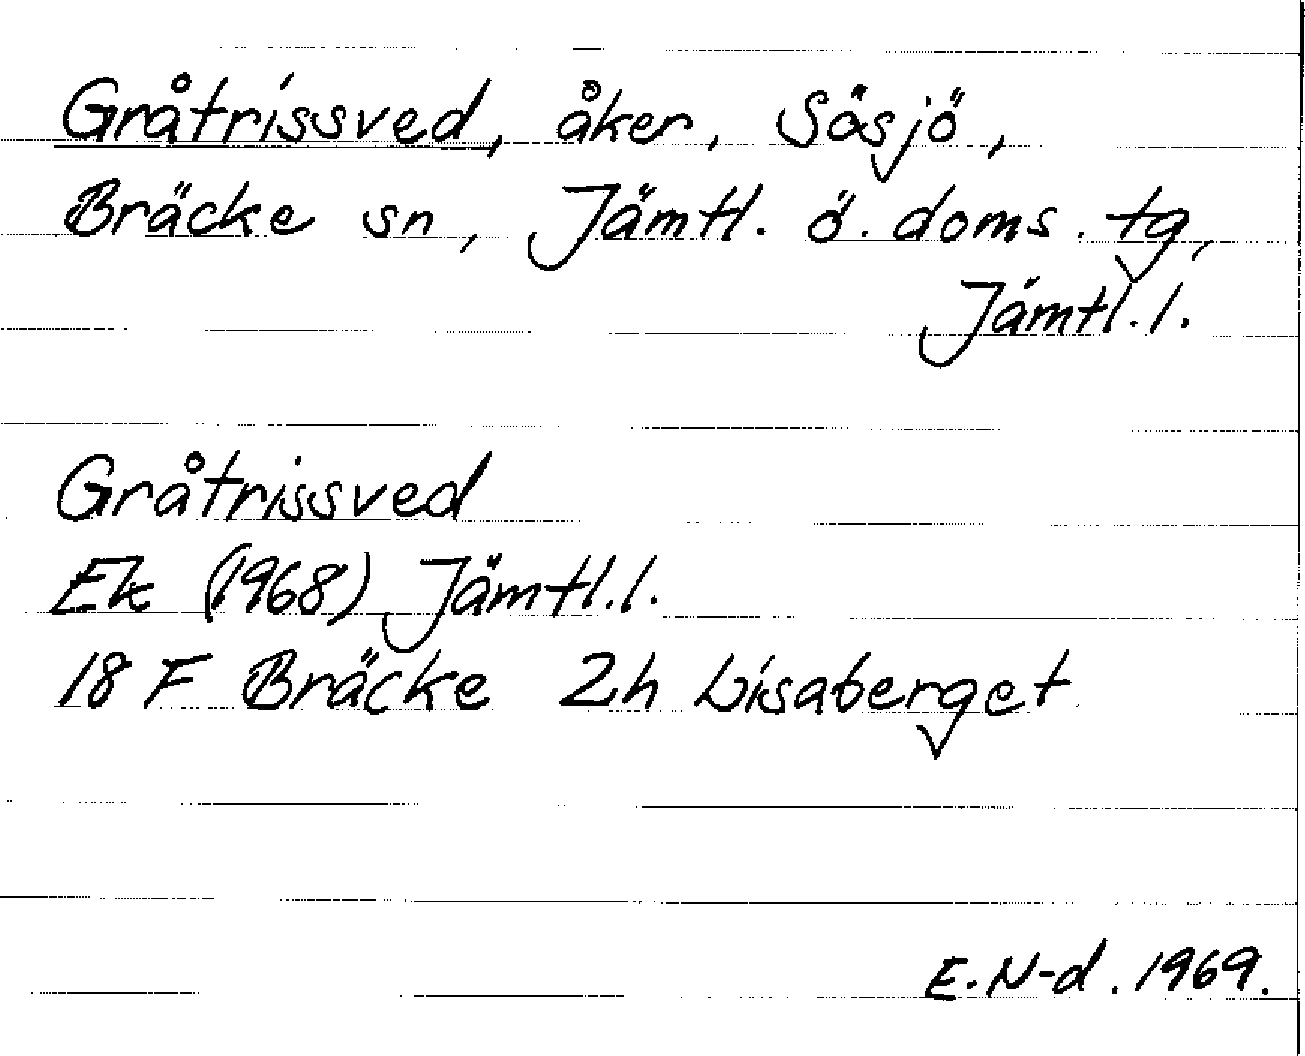 Gråtrissved, åker, Sösjö,
Bräcke sn, Jämtl. ö. doms. tg,
Jämtl. l.
Gråtrissved
Ek (1968) Jämtl. l.
18 F Bräcke 2h Lisaberget
E. N-d. 1969.